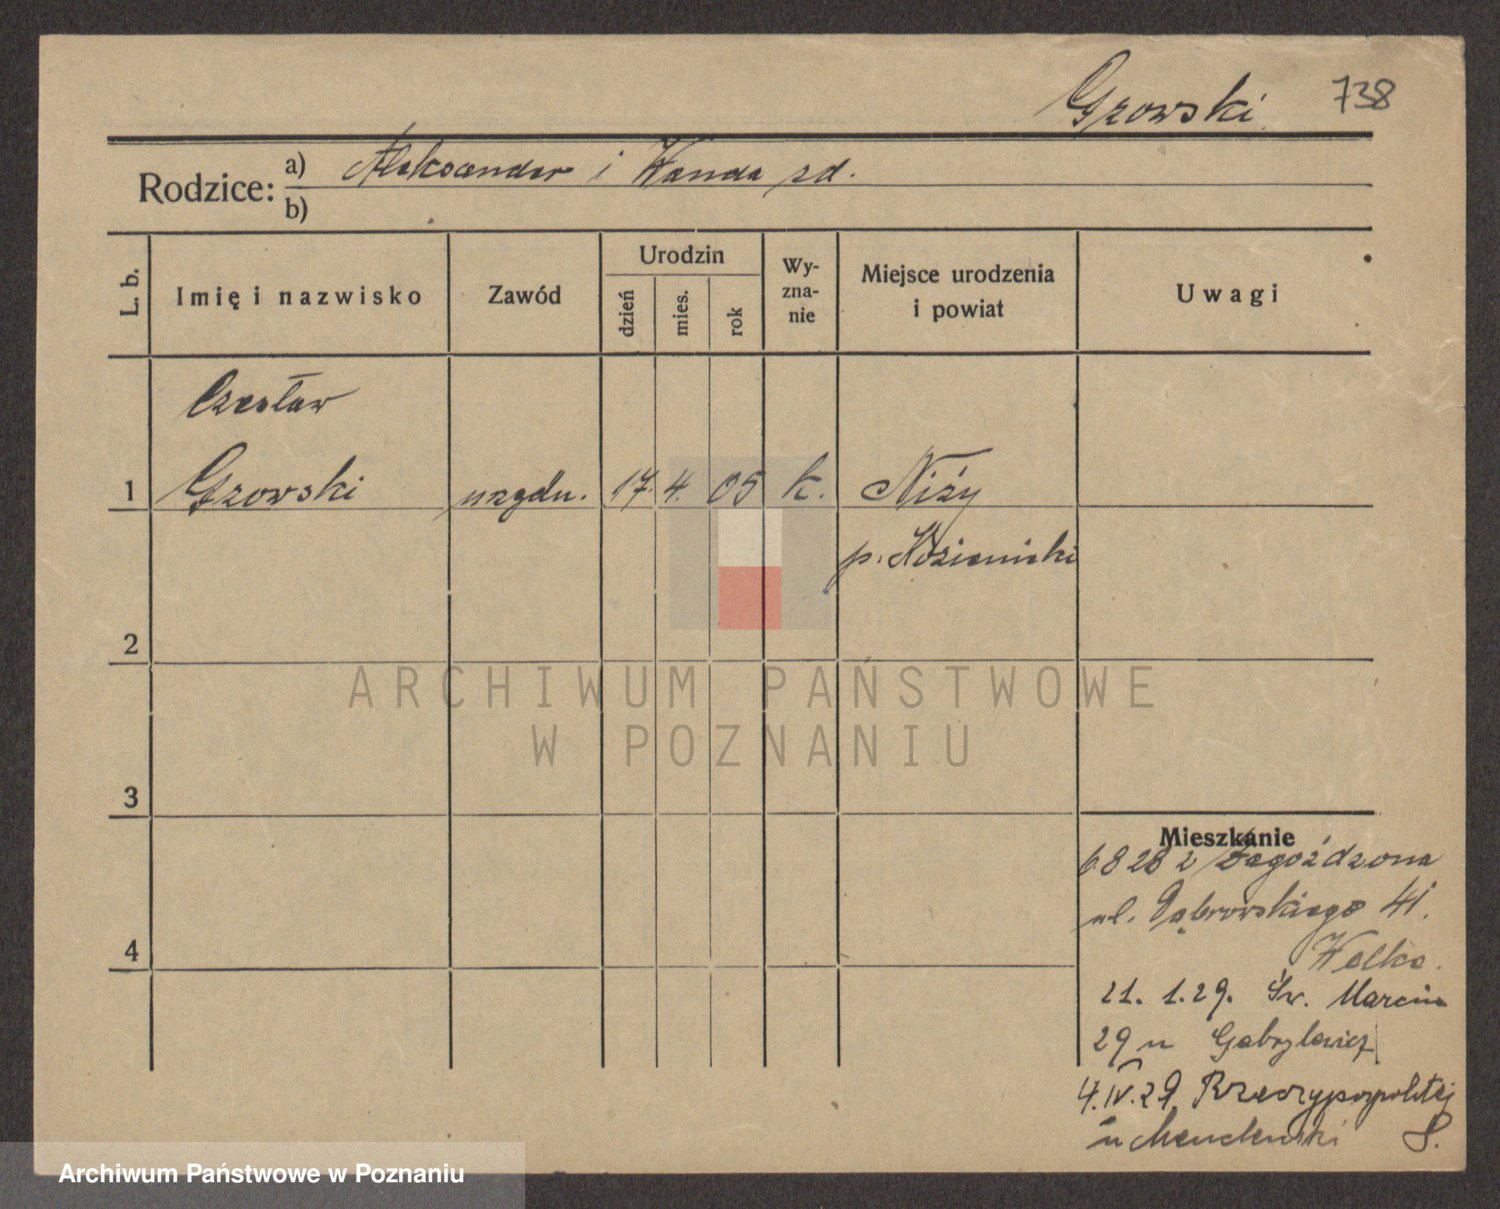 Gzowski 738
Rodzice: a) Aleksander i Wanda zd.
b)
L. b. Imię i nazwisko Zawód Urodzin dzień mies. rok Wy-zna-nie Miejsce urodzenia i powiat Uwagi
Czesław
1 Gzowski urzędn. 17. 4. 05 k. Niży
p. Kozienicki
2
ARCHIWUM PAŃSTWOWE
W POZNANIU
3
Mieszkanie
6828 z Zagożdżona
ul. Dąbrowskiego 41.
4
21. 1.29. Św. Marcin
29 u Gabrylewicz
4.IV.29. Rzeczypospolitej
8.
Archiwum Państwowe w Poznaniu